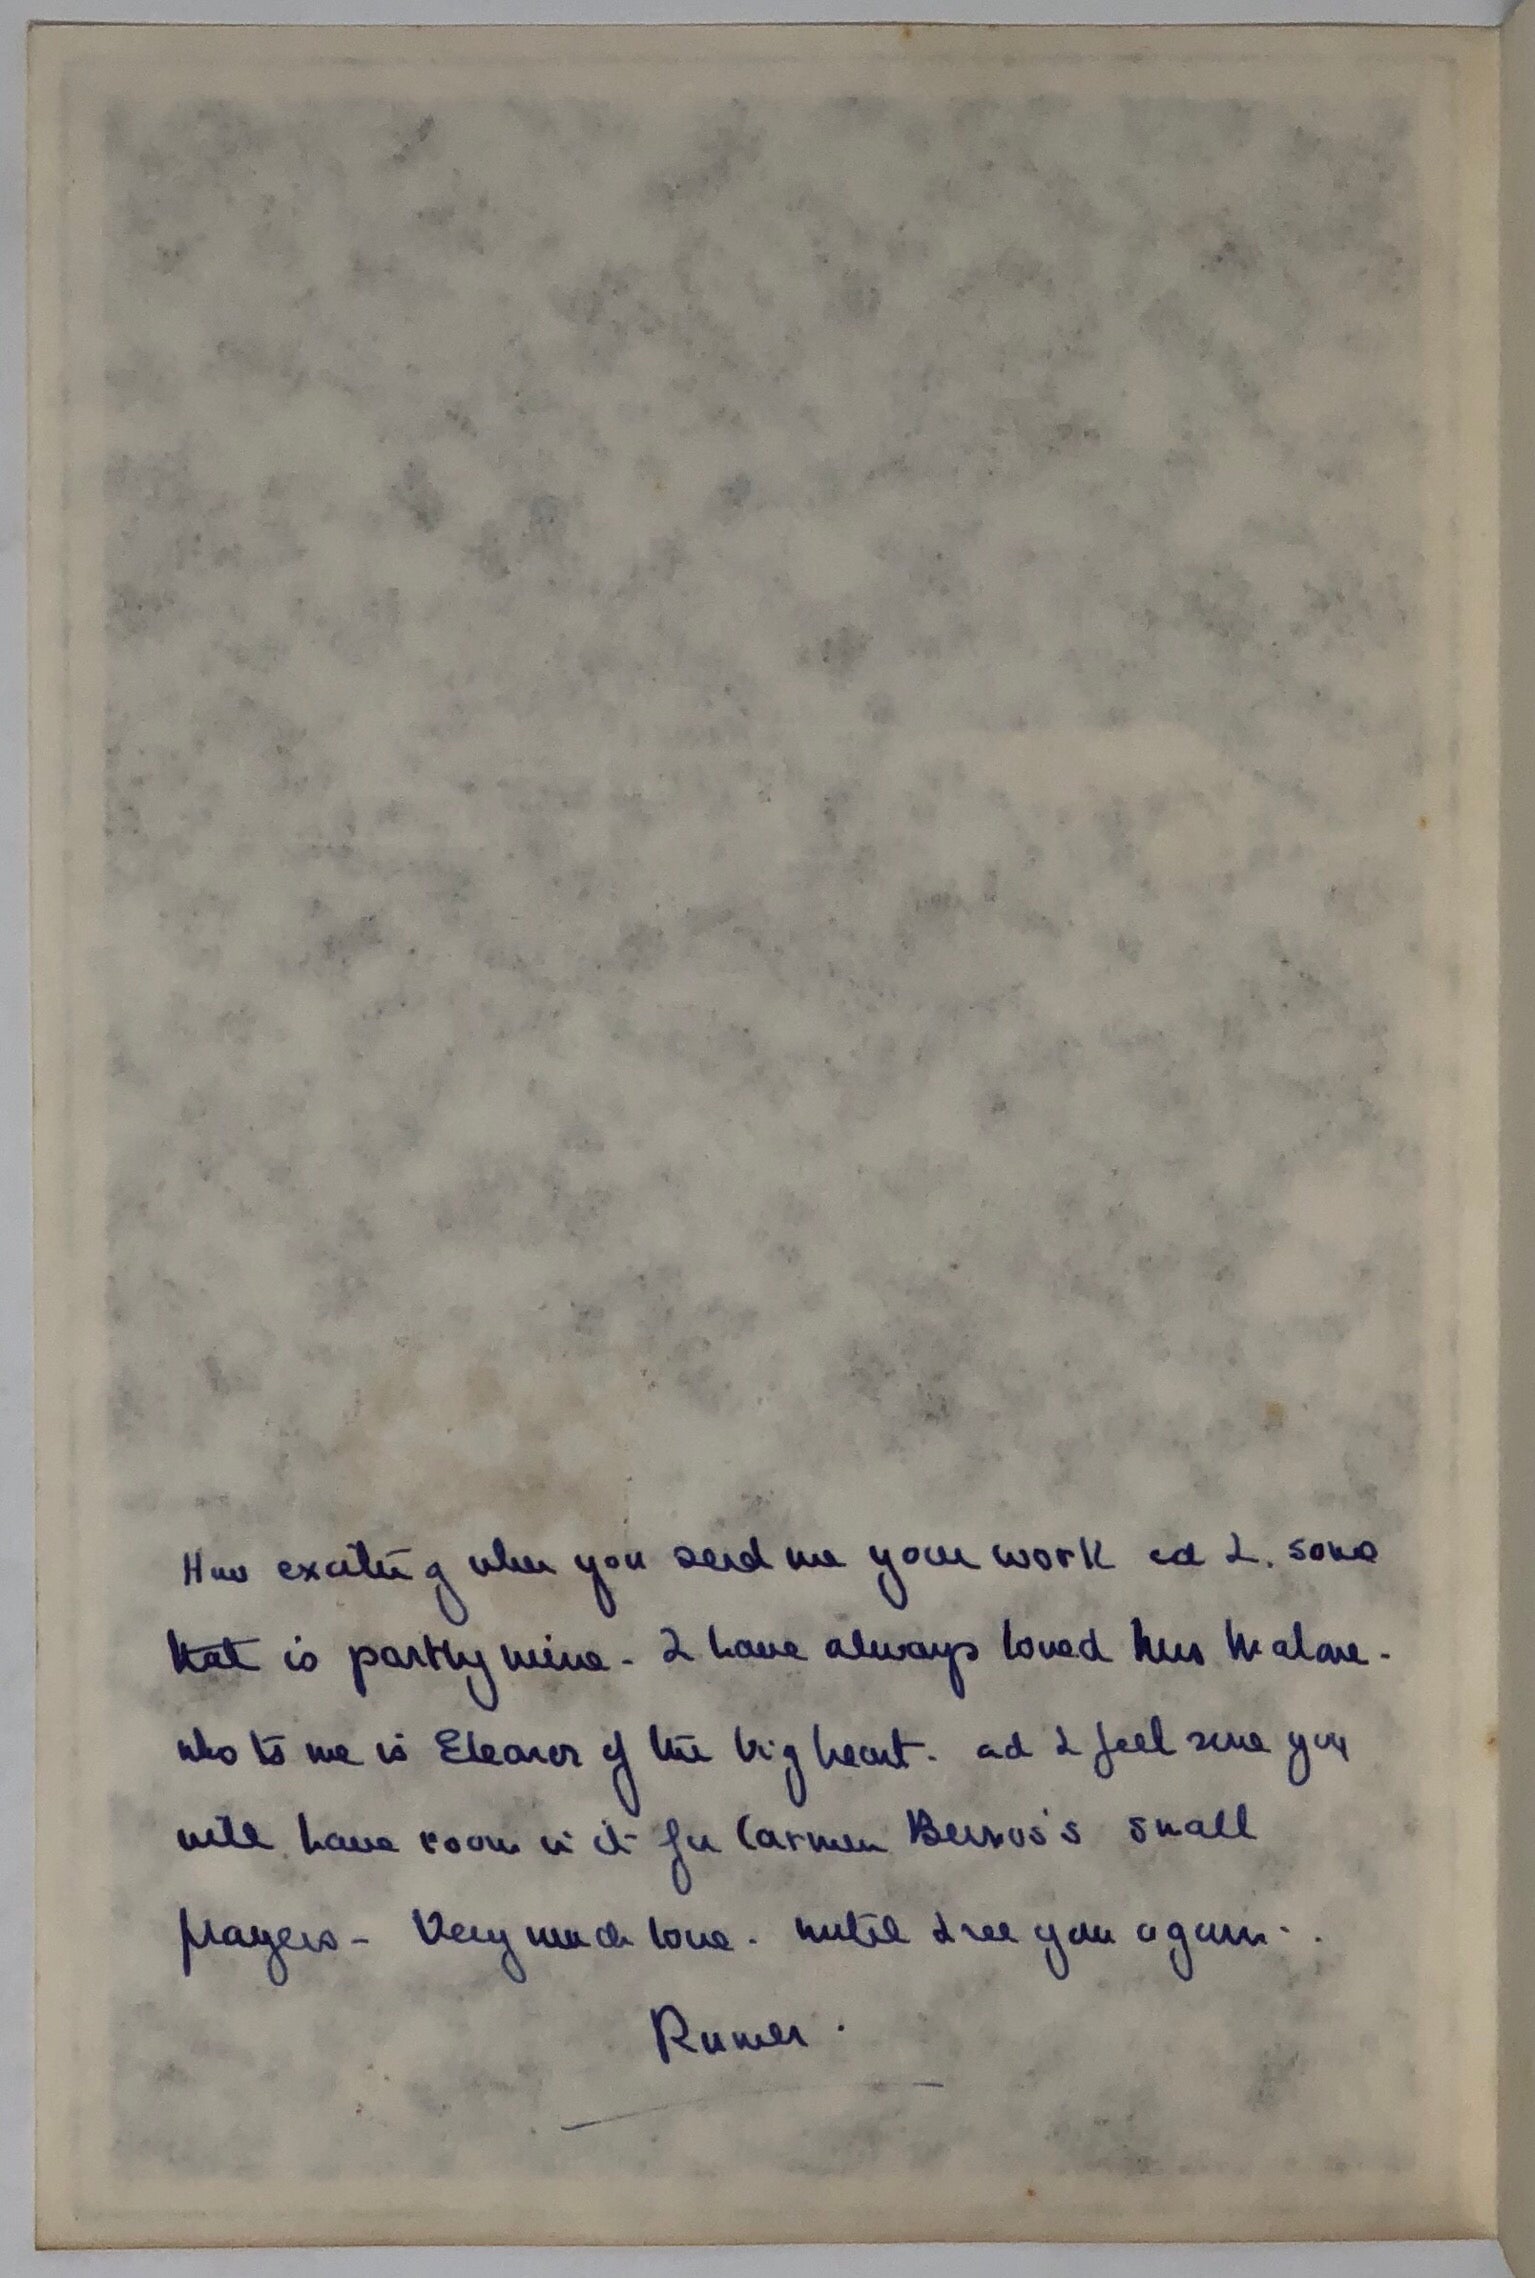 How exciting when you send me your work and I. some
that is partly mine - I have always loved Mrs Malone -
who to me is Eleanor of the big heart. and I feel sure you
will have room in it for Carmen Bernos's small
prayers - Very much love. until I see you again - .
Rumer .